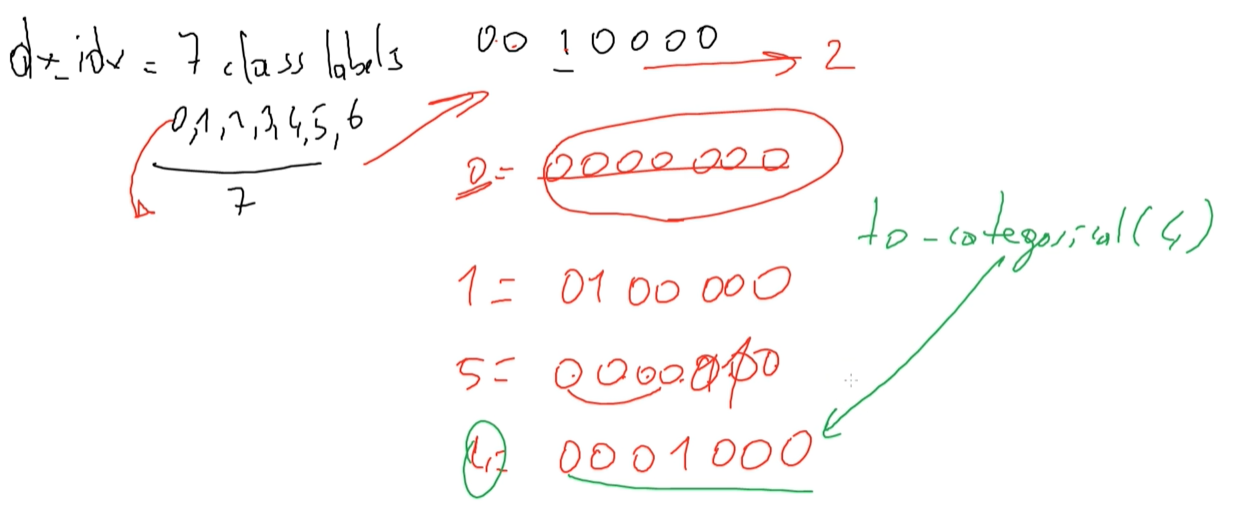 dx_idx = 7 class labels
0,1,2,3,4,5,6
7
00 1 0 0 0 0 → 2
0 = 0000 000
1 = 01 00 000
5 = 0000010
4 = 0001000
to-categorical(4)